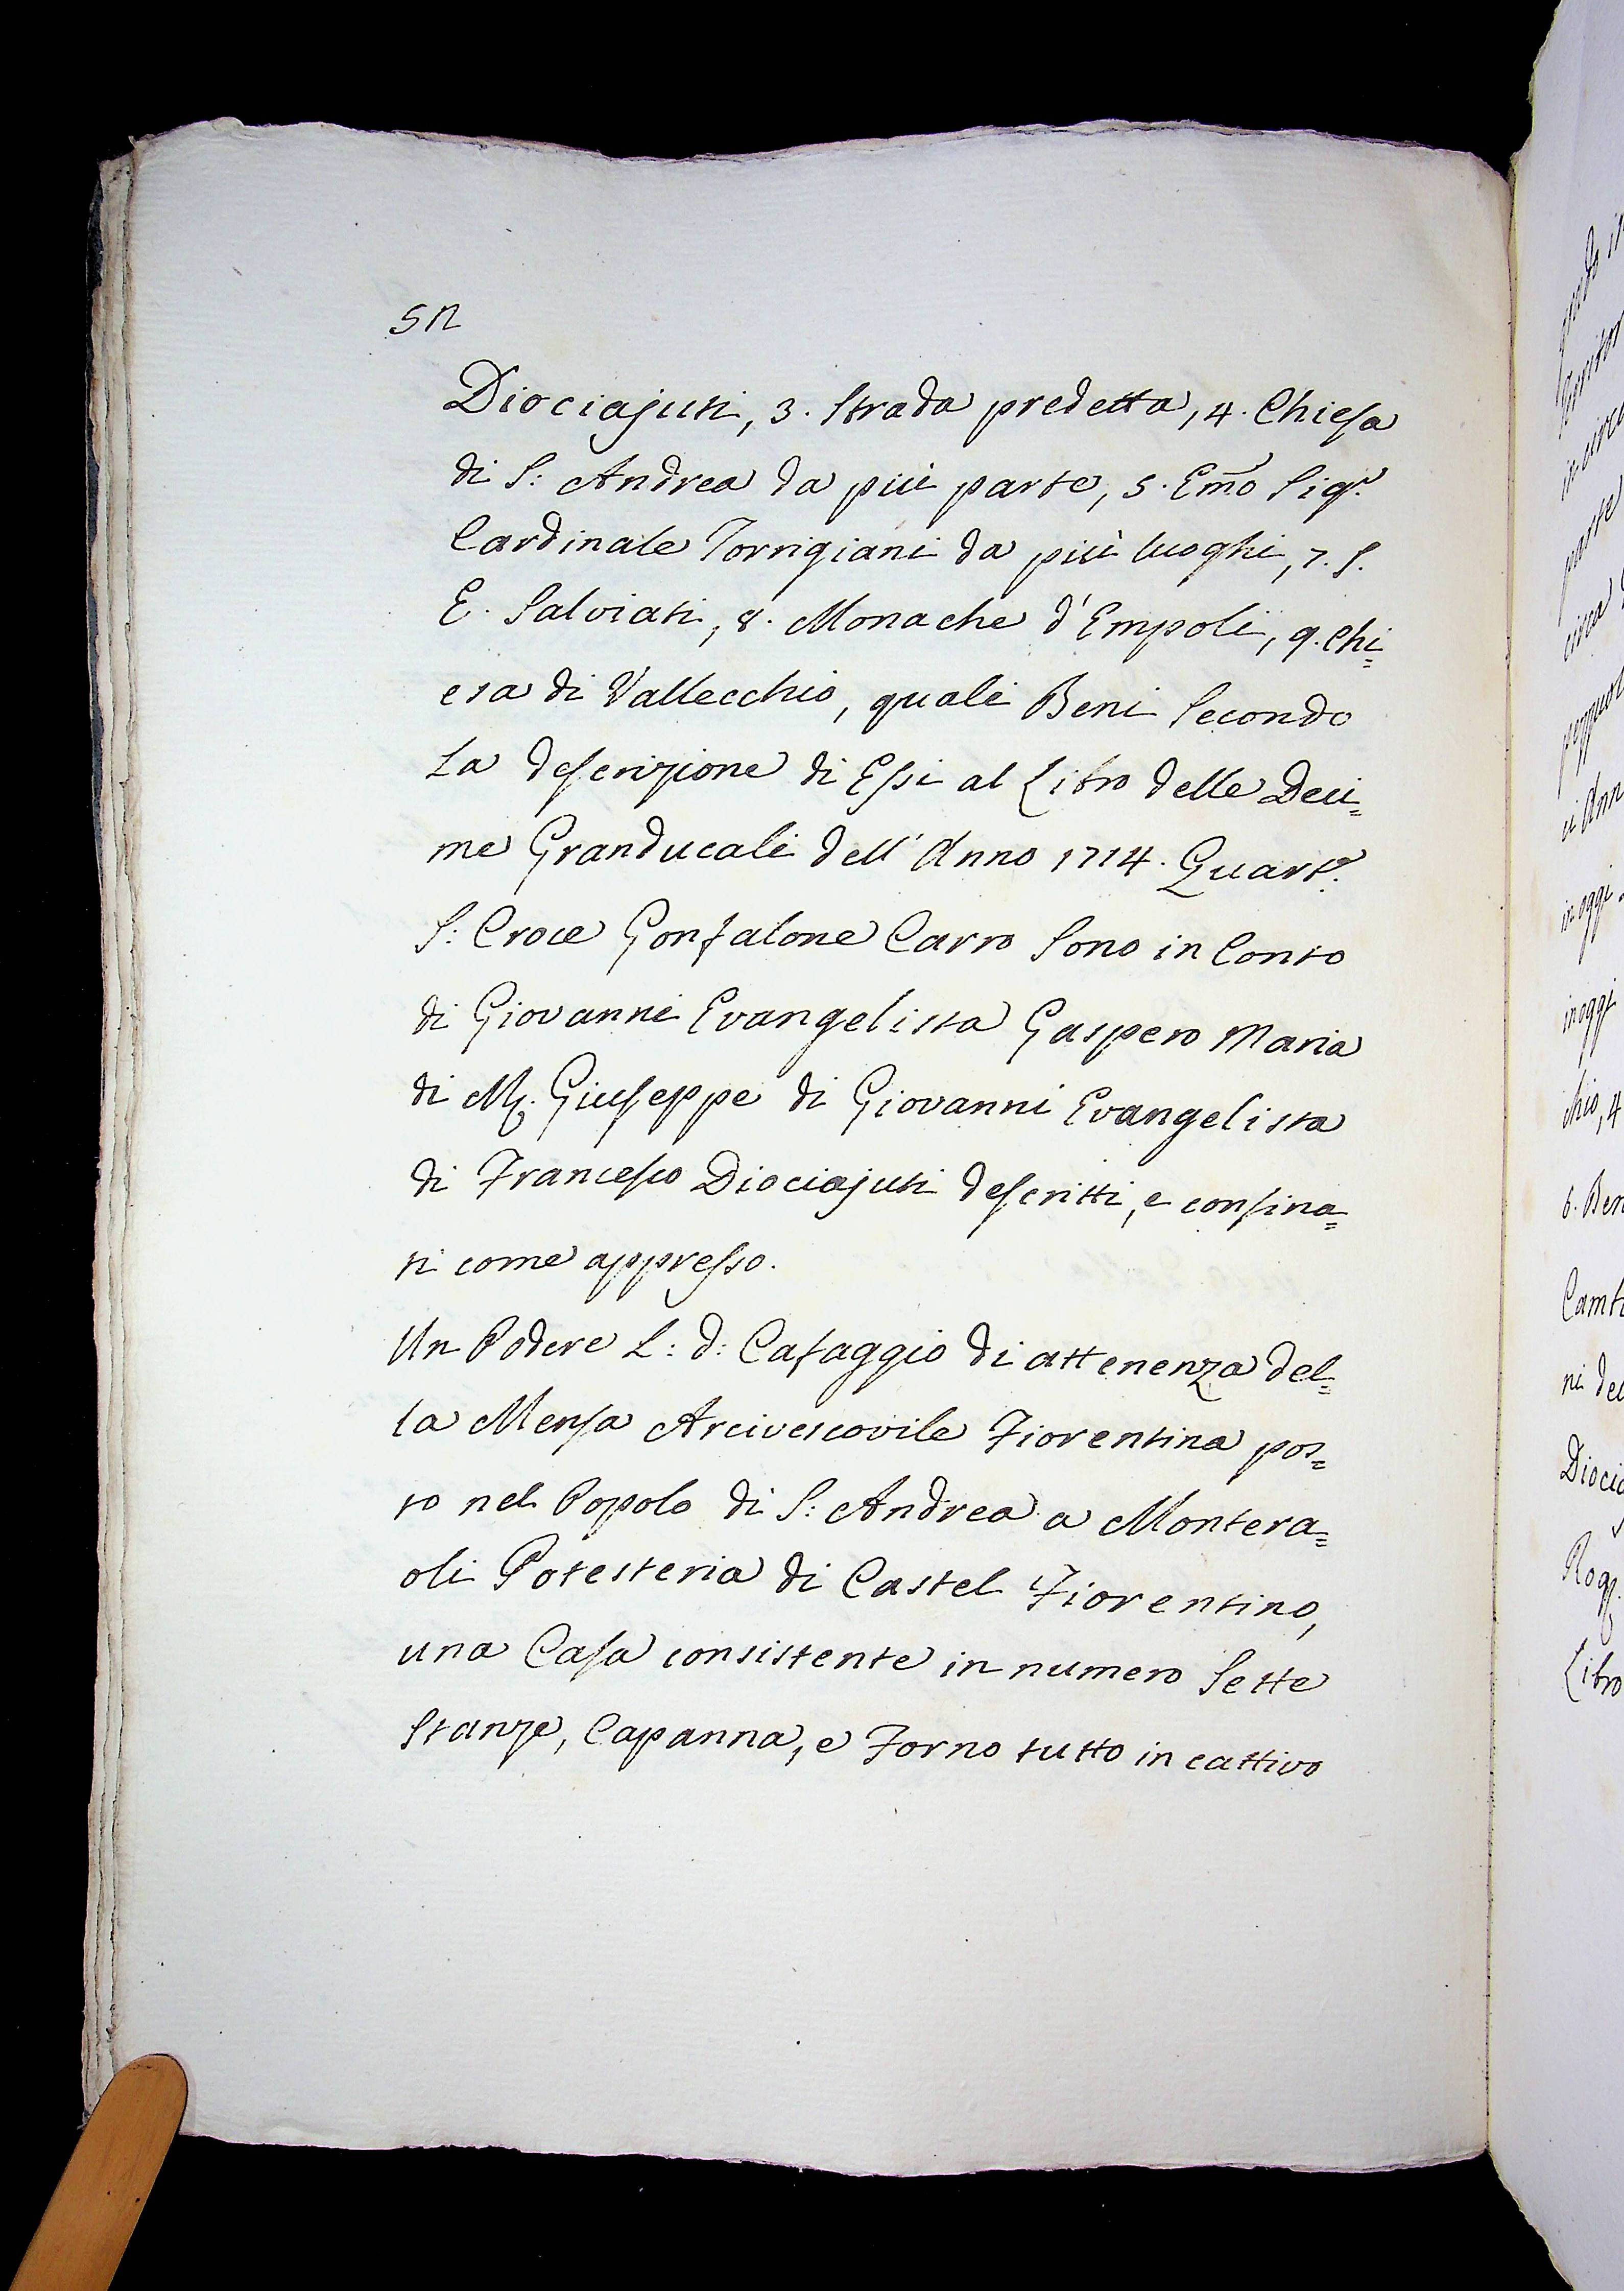 52
Diociajuti, 3. Strada predetta, 4. Chiesa
di S: Andrea da più parte, 5. Emo Sigr.
Cardinale Torrigiani da più luoghi, 7. S.
E. Salviati, 8. Monache d'Empoli, 9. Chi=
esa di Vallecchio, quali Beni Secondo
La descrizione di Essi al Libro delle Deci=
me Granducali dell'Anno 1714. Quarte.
S: Croce Gonfalone Carro Sono in Conto
di Giovanni Evangelista Gaspero Maria
di Mr. Giuseppe di Giovanni Evangelista
di Francesco Diociajuti descritti, e confina=
ti come appresso.
Un Podere L: d: Cafaggio di attenenza del=
la Mensa Arcivescovile Fiorentina pos=
to nel Popolo di S: Andrea a Montera=
oli Potesteria di Castel Fiorentino,
una Casa consistente in numero Sette
Stanze, Capanna, e Forno tutto in cattivo
in oggi
in oggi
chio, 4
6. Ben
ni del
Libro